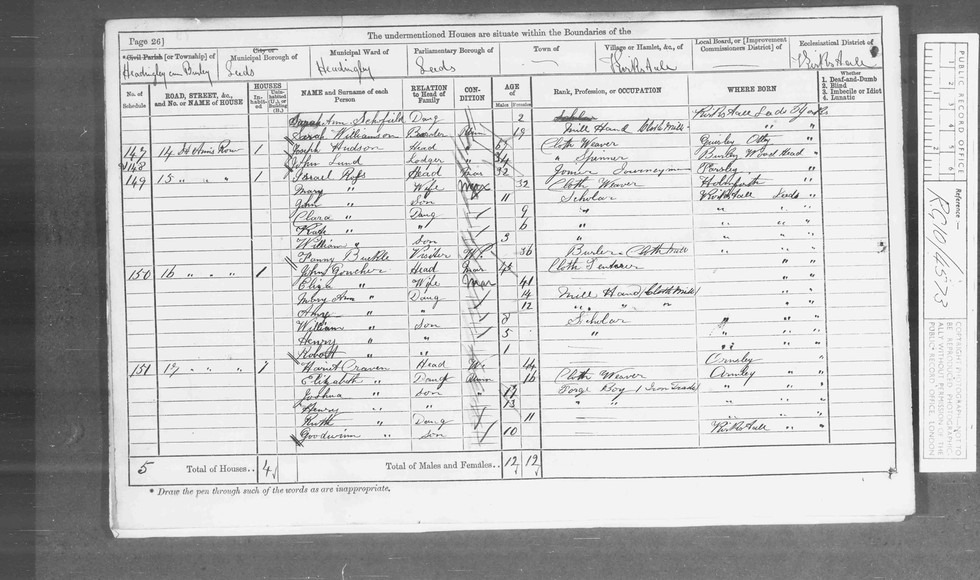 The undermentioned Houses are situate within the Boundaries of the
Page 26]
* Civil Parish [or Township] of
City or Municipal Borough of
Municipal Ward of
Parliamentary Borough of
Town of
Village or Hamlet, &c., of
Local Board, or [Improvement Commissioners District] of
Ecclesiastical District of
Headingley cum Burley Leeds Headingley Leeds Kirkstall Kirkstall
No. of Schedule
ROAD, STREET, &c., and No. or NAME of HOUSE
HOUSES
Inhabited
Uninhabited (U.), or Building (B.)
NAME and Surname of each Person
RELATION to Head of Family
CONDITION
AGE of
Males Females
Rank, Profession, or OCCUPATION
WHERE BORN
Whether
1. Deaf-and-Dumb
2. Blind
3. Imbecile or Idiot
4. Lunatic
Sarah Ann Schofield Daug 2 Scholar Kirkstall Leeds Yorks
Sarah Williamson Boarder Unm 19 Mill Hand Cloth Mill " "
147 14 St Anns Row 1 Joseph Hudson Head " Cloth Weaver Guisley Otley "
148 John Lund Lodger " 34 " Spinner Burley Wood Head "
149 15 " " " 1 Israel Ross Head Mar 32 Joiner Journeyman Farsley "
Mary " Wife Mar 32 Cloth Weaver Holmfirth "
John " Son 11 Scholar Kirkstall Leeds "
Clara " Daug 9 " " " "
Kate " " 6 " " "
William " Son 3 " " " "
Fanny Buckle Visitor W. 36 Burler Cloth Mill " " "
150 16 " " " 1 John Goucher Head Mar 45 Cloth Tenterer " " "
Eliza " Wife Mar 41 " " "
Mary Ann " Daug 14 Mill Hand (Cloth Mill) " " "
Amy " " 12 " " " " " "
William " Son 8 Scholar " " "
Henry " " 5 " " " "
Robert " " 1 " " "
151 17 " " " 1 Harriet Craven Head W. 44 "
Elizabeth " Daug Unm 16 Cloth Weaver Armley "
Joshua " Son 17 Forge Boy (Iron Trade) " "
Henry " " 13 " " " " "
Ruth " Daug 11 " "
Goodwinn " Son 10 Kirkstall " "
5 Total of Houses.. 4 Total of Males and Females.. 12 12
* Draw the pen through such of the words as are inappropriate.
PUBLIC RECORD OFFICE
1 2 3 4 5 6
Reference:—
RG10/4573
COPYRIGHT PHOTOGRAPH—NOT TO BE REPRODUCED PHOTOGRAPHICALLY WITHOUT PERMISSION OF THE PUBLIC RECORD OFFICE, LONDON